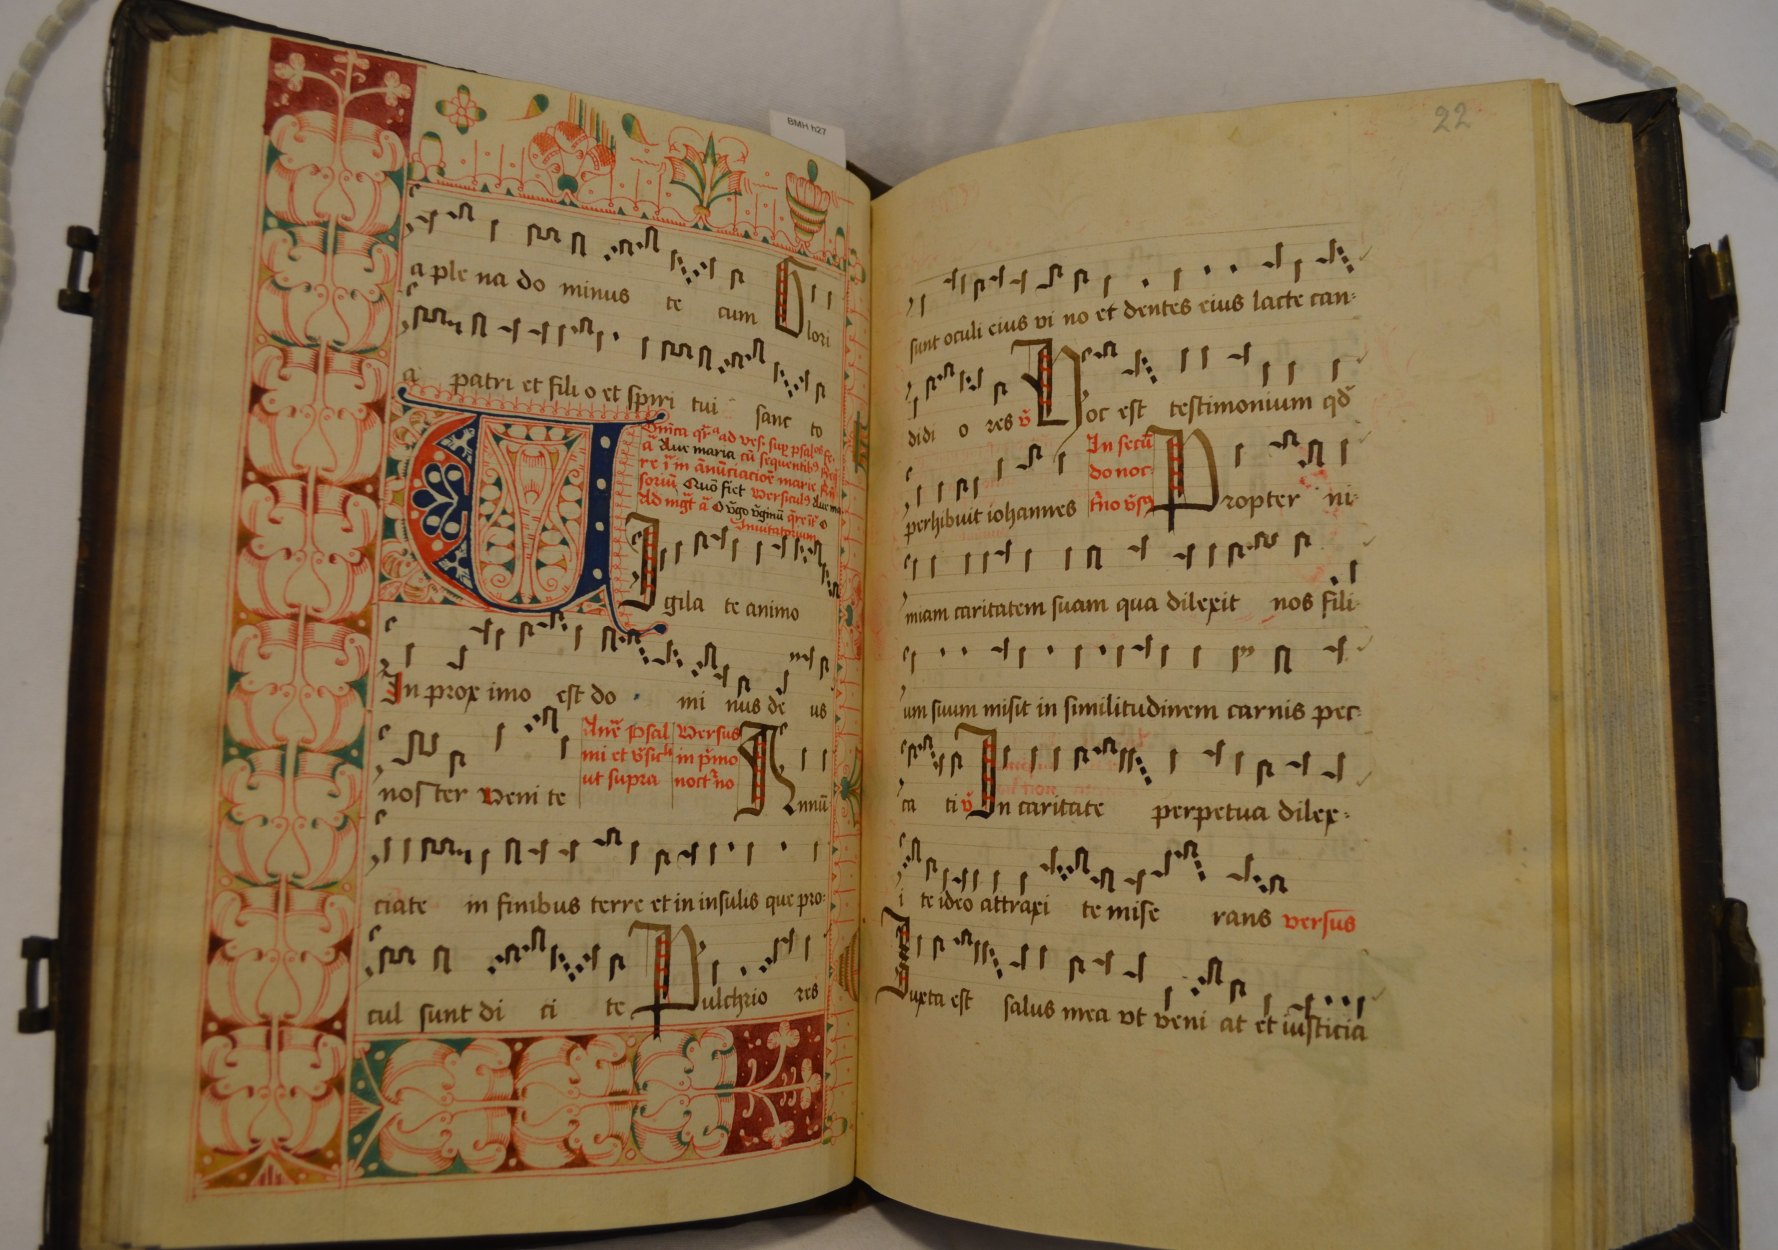 BMH h27
a ple na do minus te cum Glori
a patri et fili o et spiri tui sanc to
Dn̄ica qr̄ᵃ ad ves. sup̲ psalᵒˢ fe.
ā Aue maria cū sequentibꝰ
re ī in ānūciacioē marie
soriū Quō fiet versiculꝰ Aue ma
Ad mg̃t ā O v̄go v̄ginū q̄re īᵃ O
Inuitatorium
Vigila te animo
In prox imo est do mi nus de us
nos ter veni te
Ane Psal
mi et v̄sicˡⁱ
ut supra
Versus
in p̄mo
noct̄no
Annū
ciate in finibus terre et in insulis que pro:
cul sunt di ci te Pulchrio res
22
sunt oculi eius vi no et dentes eius lacte can:
didi o res v̄ Hoc est testimonium qd̄
perhibuit iohannes
In secū
do noc
t̄no v̄sꝫ
Propter ni:
miam caritatem suam qua dilexit nos fili:
um suum misit in similitudinem carnis pec:
ca ti v̄ In caritate perpetua dilex:
i te ideo attraxi te mise rans versus
Iuxta est salus mea vt veni at et iusticia